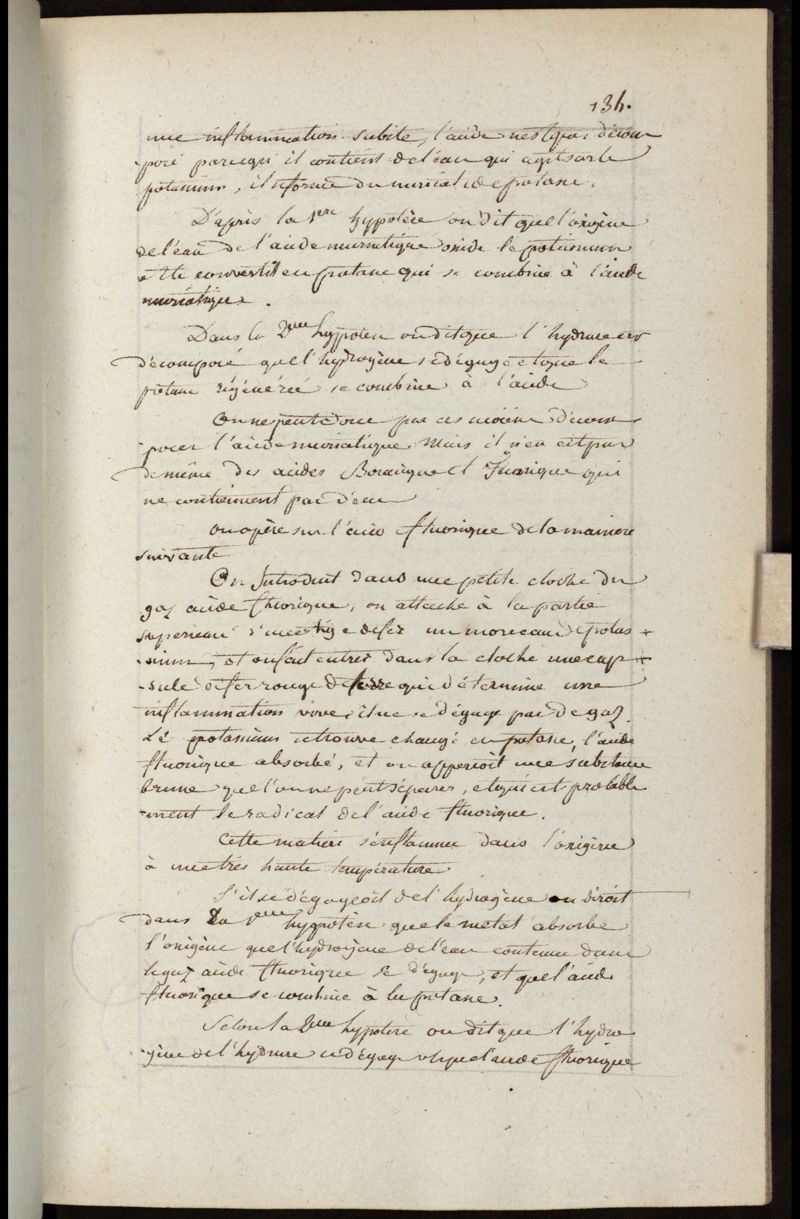 134.
une inflammation subite, l'acide n'est pas décom
posé parcequ'il contient de l'eau qui agit sur le
potassium, il se forme du muriate de potasse.
D'après la 1ere hypotèse on dit que l'oxigène
de l'eau de l'acide muriatique oxide le potassium
et le convertit en potasse qui se combine à l'acide
muriatique.
Dans la 2eme hypotèse on dit que l'hydrure est
décomposé que l'hydrogène se dégage et que la
potasse régénérée se combine à l'acide
On ne peut donc par ces moiens décom
poser l'acide muriatique Mais il n'en est pas
de même des acides Boracique et Fluorique qui
ne contiennent pas d'eau
on opère sur l'acide fluorique de la maniere
suivante
On Introduit dans une petite cloche du
gaz acide fluorique, on attache à la partie
superieure d'une tige de fer un morceau de potas
sium, et on fait entrer dans la cloche une cap
sule de fer rouge de qui détermine une
inflammation vive, il ne se dégage pas de gaz.
Le potassium se trouve changé en potasse, l'acide
fluorique absorbé, et on apperçoit une substance
brune que l'on ne peut séparer, et qui est probable
ment le radical de l'acide fluorique.
Cette matiere s'enflamme dans l'oxigène
à une très haute température
S'il se dégageoit de l'hydrogène on diroit
dans la 1ere hypotèse que le metal absorbe
l'oxigène que l'hydrogène de l'eau contenue dans
le gaz acide fluorique se dégage, et que l'acide
fluorique se combine à la potasse.
Selon la 2eme hypotèse on dit que l'hydro
gène de l'hydrure se dégage et que l'acide fluorique